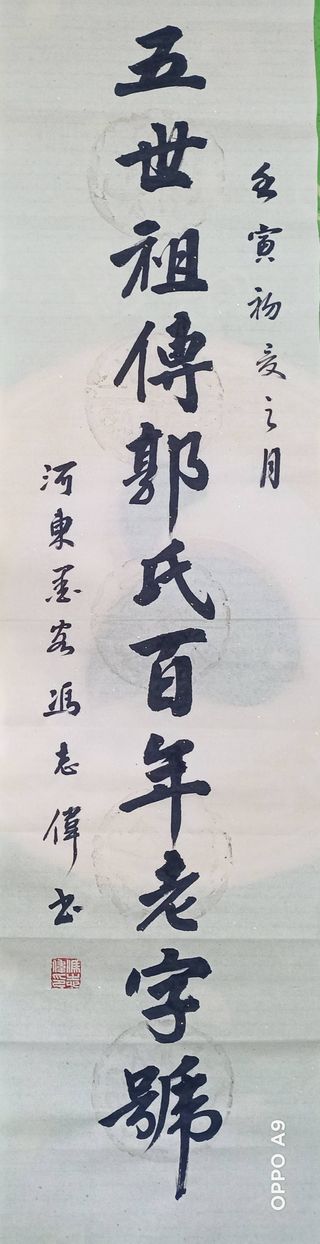 壬寅初夏之月
五世祖傳郭氏百年老字號
河東墨客馮志偉书
OPPO A9